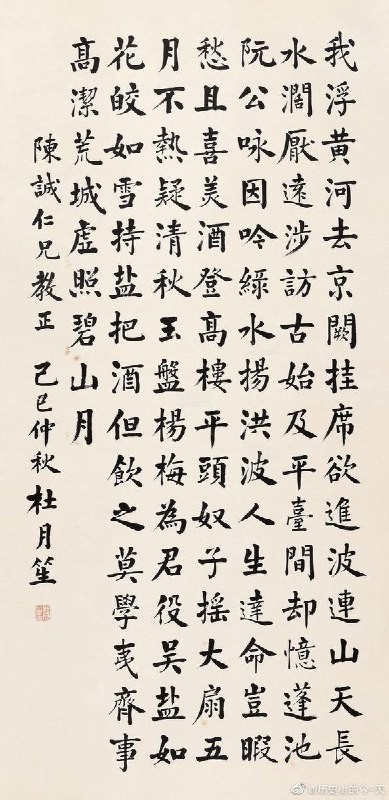 我浮黄河去京闕挂席欲進波連山天長
水濶厭遠涉訪古始及平臺間却憶蓬池
阮公咏因吟綠水揚洪波人生達命豈暇
愁且喜美酒登高樓平頭奴子摇大扇五
月不熱疑清秋玉盤楊梅為君役吴盐如
花皎如雪持盐把酒但飲之莫學夷齊事
髙潔荒城虚照碧山月
陳誠仁兄教正 己巳仲秋 杜月笙